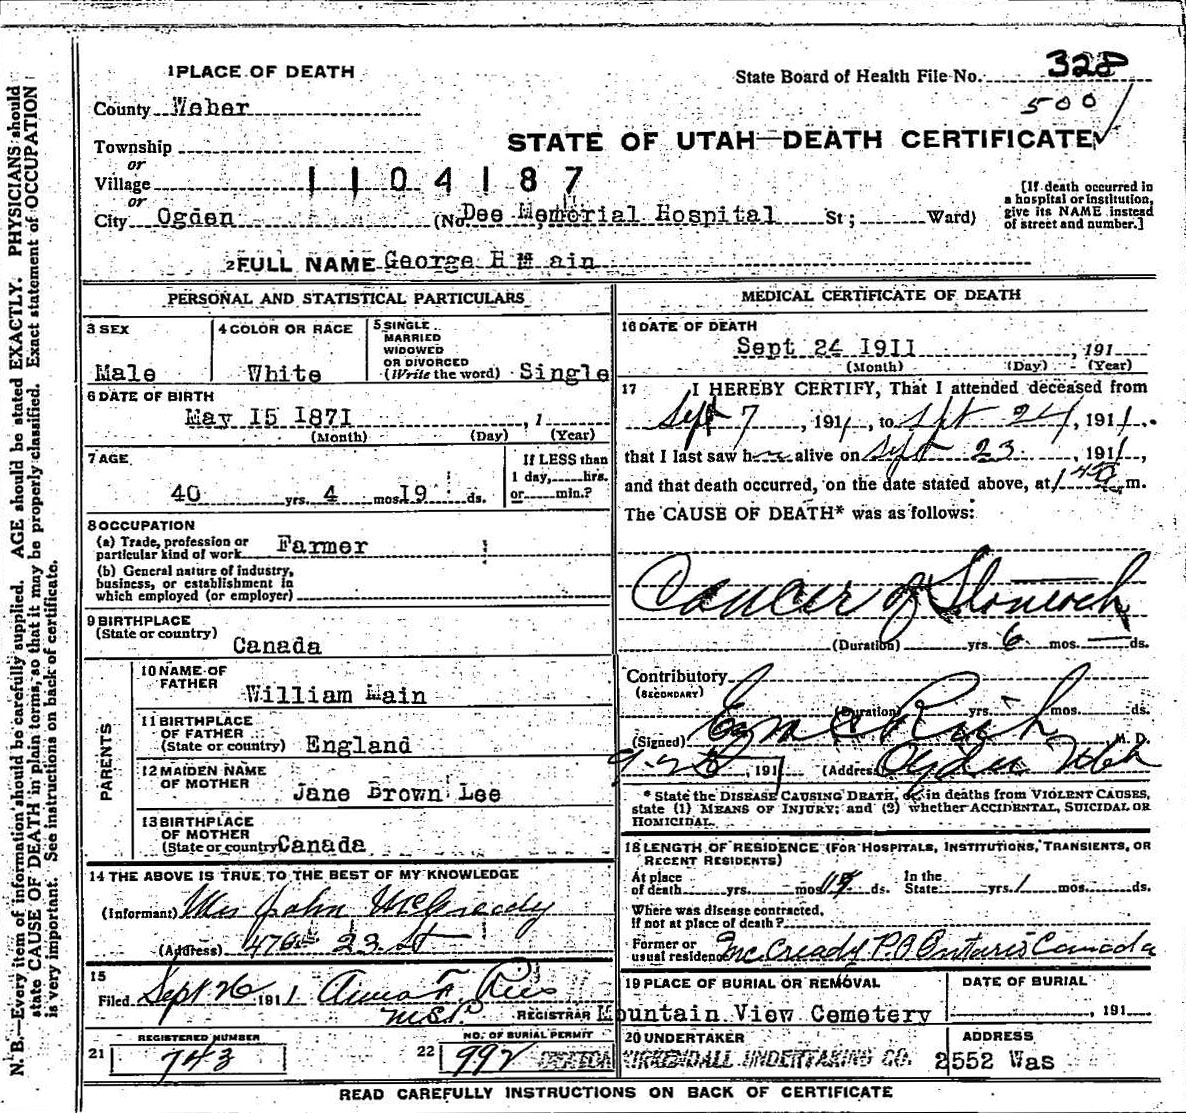 1 PLACE OF DEATH
State Board of Health File No. 328
County Weber
500
Township
STATE OF UTAH—DEATH CERTIFICATE
or
Village
1104187
or
City Ogden (No. Dee Memorial Hospital St; Ward)
[If death occurred in a hospital or institution, give its NAME instead of street and number.]
2 FULL NAME George H M ain
PERSONAL AND STATISTICAL PARTICULARS
3 SEX
Male
4 COLOR OR RACE
White
5 SINGLE
MARRIED
WIDOWED
OR DIVORCED
(Write the word) Single
6 DATE OF BIRTH
May 15 1871 , 1
(Month) (Day) (Year)
7 AGE
40 yrs. 4 mos 19 ds.
If LESS than
1 day, hrs.
or min.?
8 OCCUPATION
(a) Trade, profession or
particular kind of work Farmer
(b) General nature of industry,
business, or establishment in
which employed (or employer)
9 BIRTHPLACE
(State or country)
Canada
PARENTS
10 NAME OF
FATHER
William Main
11 BIRTHPLACE
OF FATHER
(State or country) England
12 MAIDEN NAME
OF MOTHER
Jane Brown Lee
13 BIRTHPLACE
OF MOTHER
(State or country Canada
14 THE ABOVE IS TRUE TO THE BEST OF MY KNOWLEDGE
(Informant) Mrs John McCready
(Address) 476 23 St
15
Filed Sept 26 1911 Anna F. Ries
REGISTRAR
REGISTERED NUMBER
21 743
NO. OF BURIAL PERMIT
22 992
MEDICAL CERTIFICATE OF DEATH
16 DATE OF DEATH
Sept 24 1911 , 191
(Month) (Day) (Year)
17 I HEREBY CERTIFY, That I attended deceased from
Sept 7 , 1911, to Sept 24, 1911,
that I last saw h alive on Sept 23 1911,
and that death occurred, on the date stated above, at m.
The CAUSE OF DEATH* was as follows:
Cancer of Stomach
(Duration) yrs. 6 mos. ds.
Contributory
(SECONDARY)
(Duration) yrs. mos. ds.
(Signed) M. D.
, 191 (Address) Ogden Utah
* State the DISEASE CAUSING DEATH, or, in deaths from VIOLENT CAUSES,
state (1) MEANS OF INJURY; and (2) whether ACCIDENTAL, SUICIDAL OR
HOMICIDAL.
18 LENGTH OF RESIDENCE (FOR HOSPITALS, INSTITUTIONS, TRANSIENTS, OR
RECENT RESIDENTS)
At place
of death yrs. mos ds.
In the
State yrs. 1 mos. ds.
Where was disease contracted,
if not at place of death?
Former or
usual residence McCready P.O Ontario Canada
19 PLACE OF BURIAL OR REMOVAL
Mountain View Cemetery
DATE OF BURIAL
, 191
20 UNDERTAKER
KIRKENDALL UNDERTAKING CO.
ADDRESS
2552 Was
READ CAREFULLY INSTRUCTIONS ON BACK OF CERTIFICATE
N. B.—Every item of information should be carefully supplied. AGE should be stated EXACTLY. PHYSICIANS should
state CAUSE OF DEATH in plain terms, so that it may be properly classified. Exact statement of OCCUPATION
is very important. See instructions on back of certificate.